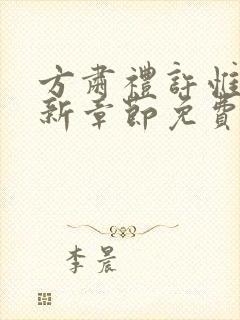 方肅禮許惟
新章節免費
李晨